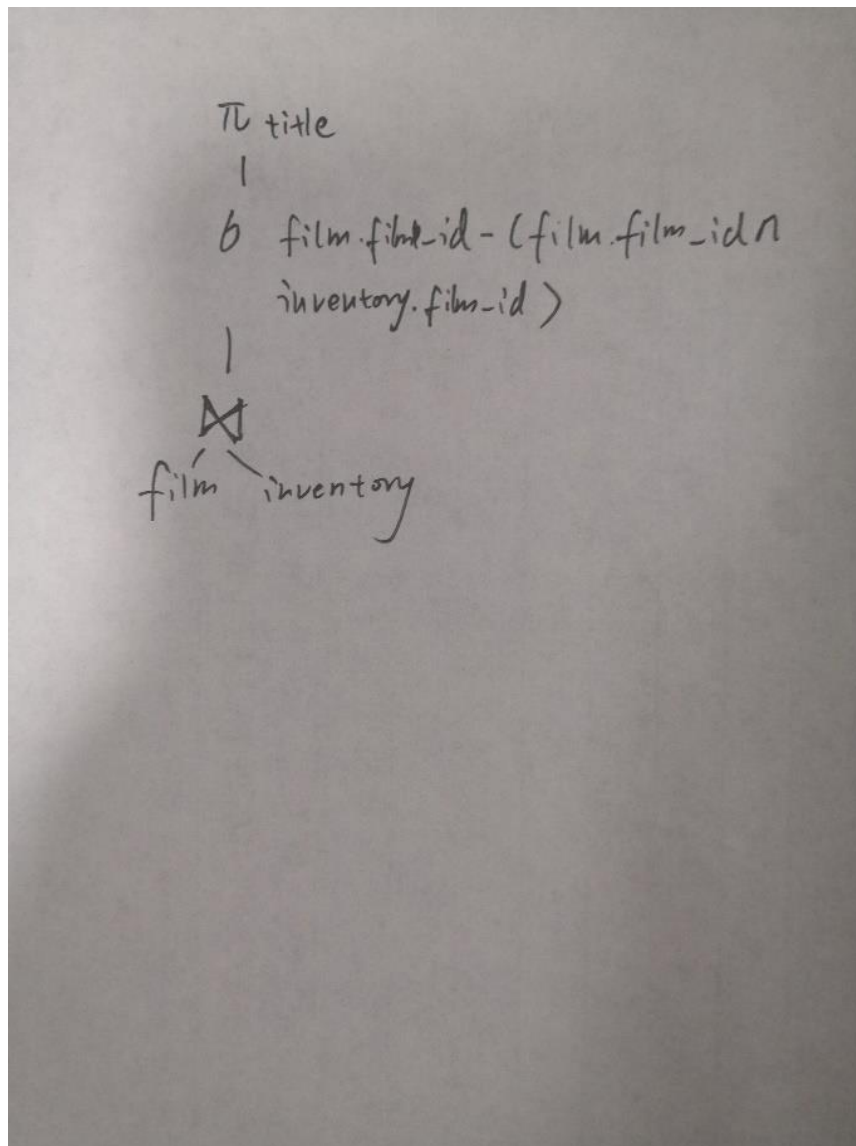 π title
σ film.film_id - (film.film_id ∩
inventory.film_id)
⋈
film inventory